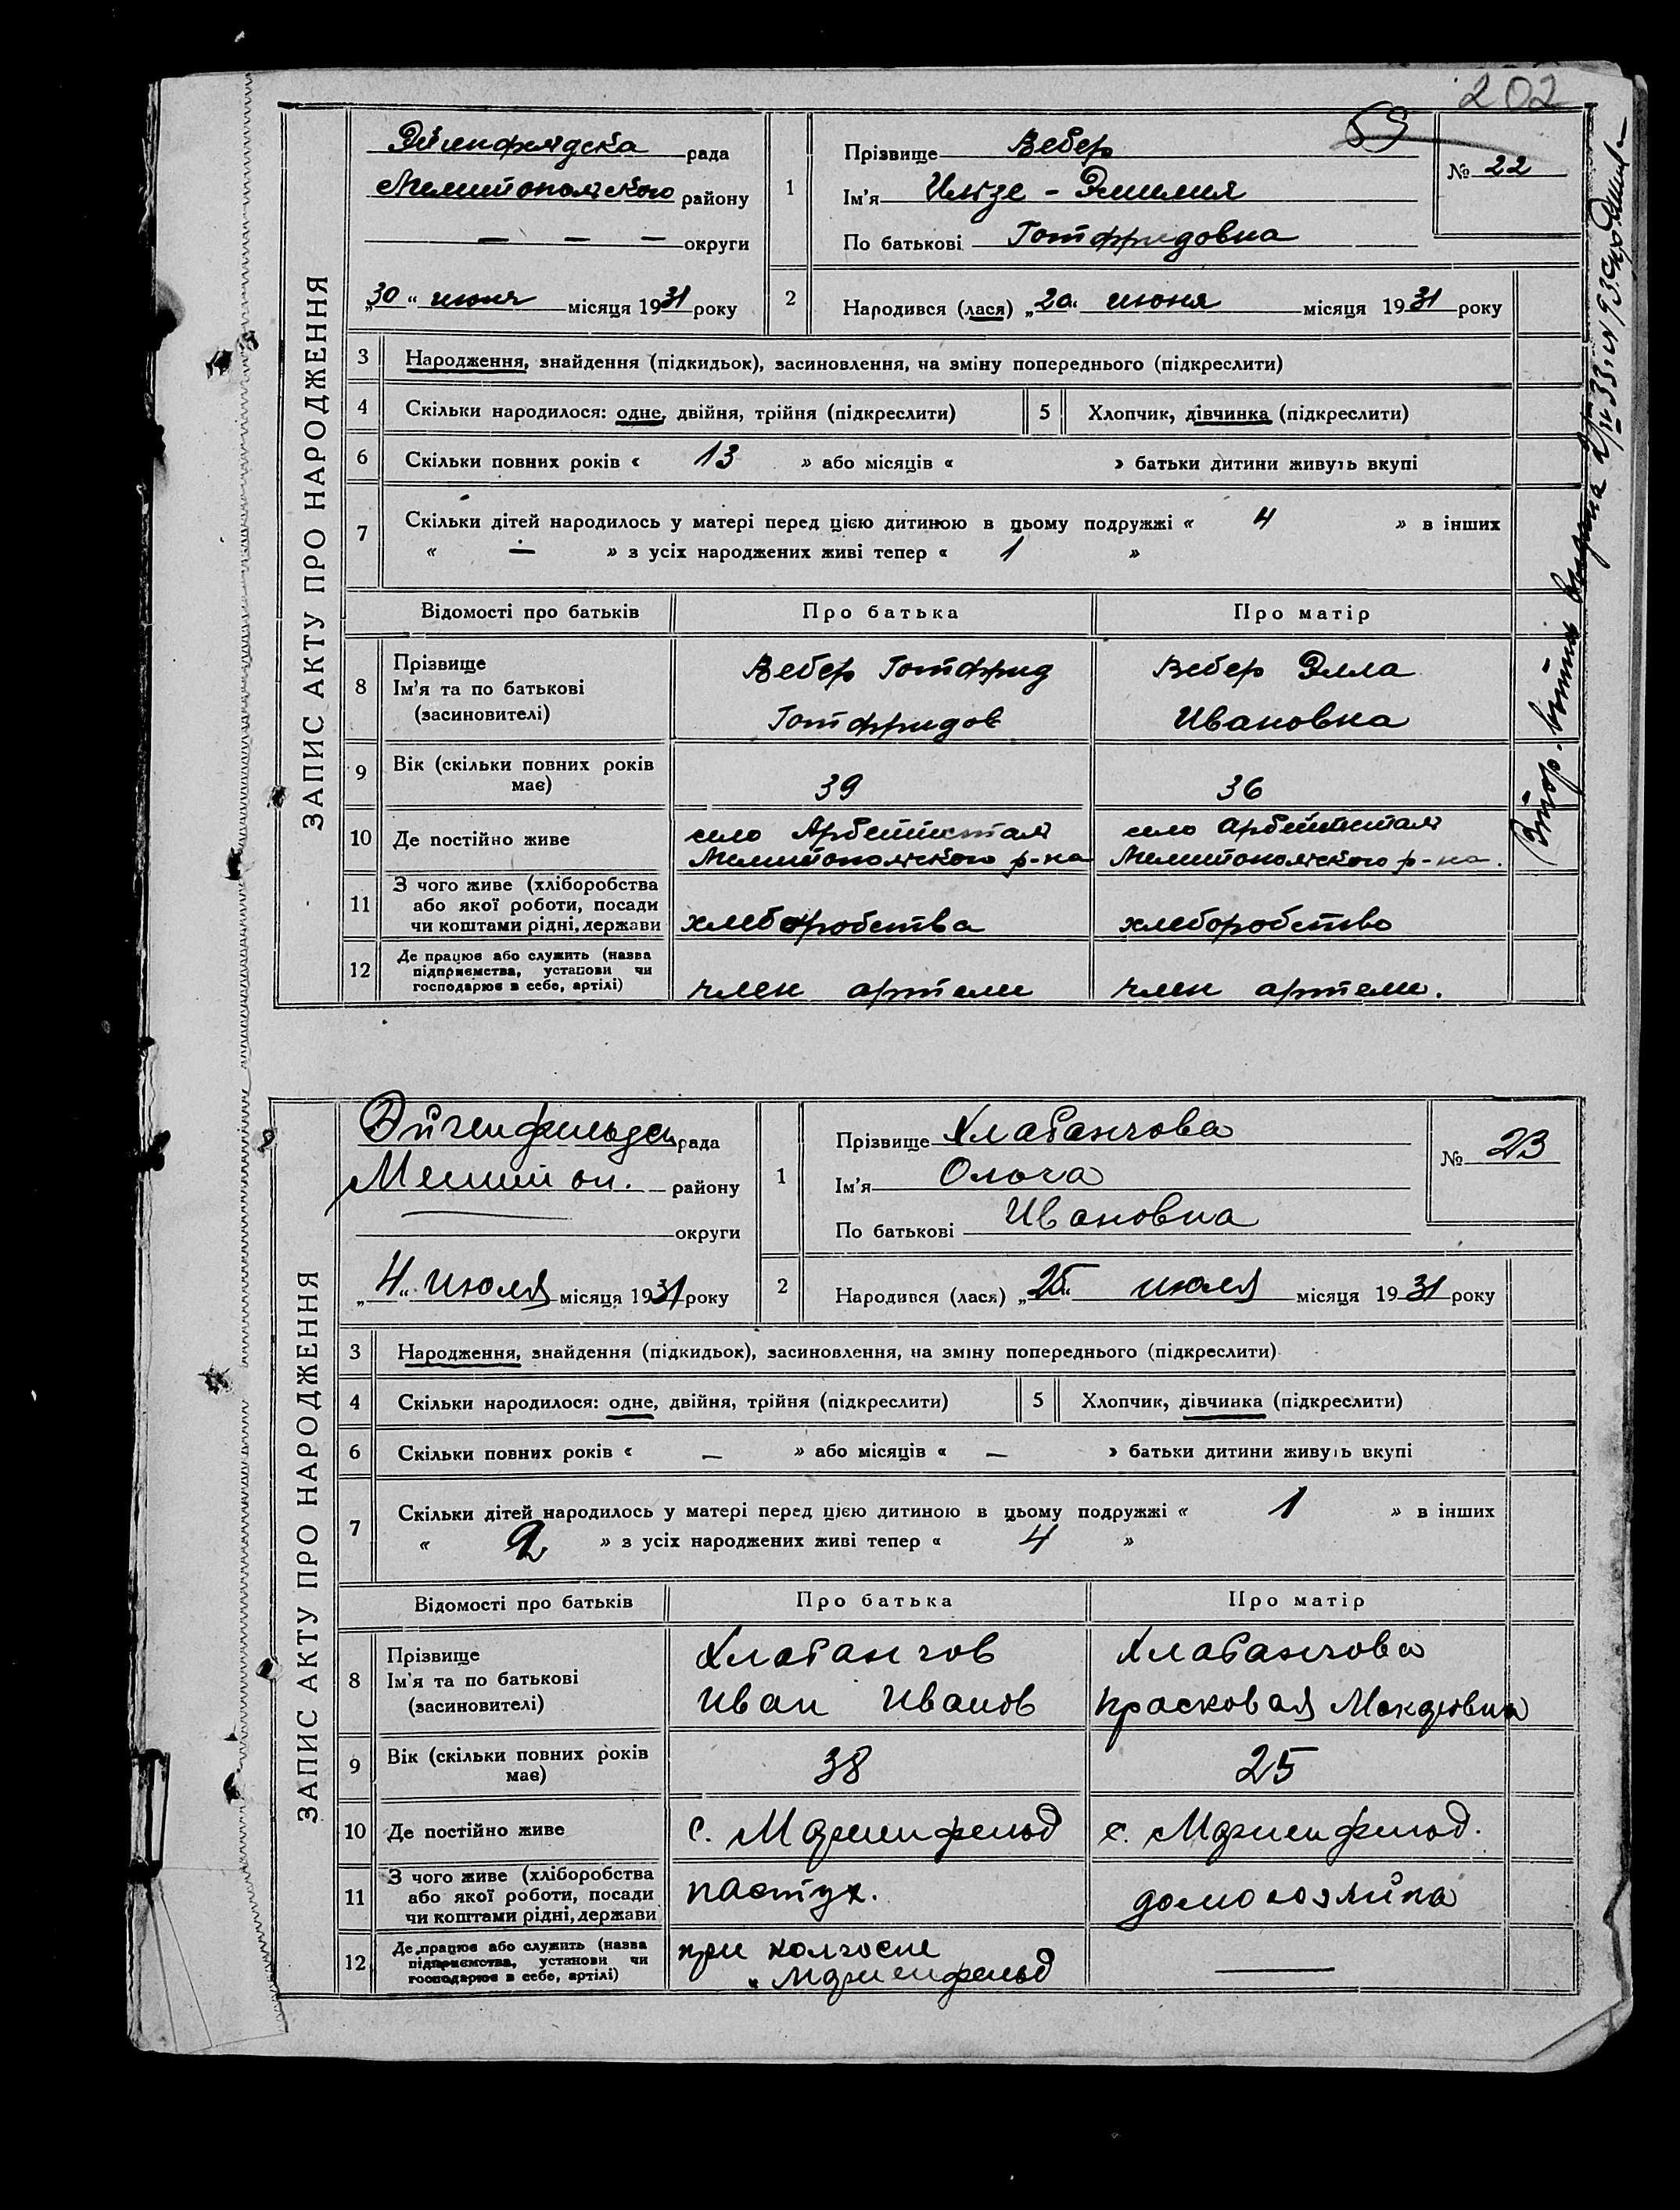 202
59
ЗАПИС АКТУ ПРО НАРОДЖЕННЯ
рада
Мелитопольского району
— — — округи
„30“ июня місяця 1931 року
1
Прізвище Вебер
Ім'я Ильзе - Эмилия
По батькові Готфридовна
№ 22
2
Народився (лася) „20“ июня місяця 1931 року
3 Народження, знайдення (підкидьок), засиновлення, на зміну попереднього (підкреслити)
4 Скільки народилося: одне, двійня, трійня (підкреслити) 5 Хлопчик, дівчинка (підкреслити)
6 Скільки повних років « 13 » або місяців « » батьки дитини живуть вкупі
7 Скільки дітей народилось у матері перед цією дитиною в цьому подружжі « 4 » в інших
« — » з усіх народжених живі тепер « 1 »
Відомості про батьків Про батька Про матір
8 Прізвище
Ім'я та по батькові
(засиновителі)
Вебер Готфрид
Готфридов
Вебер Элла
Ивановна
9 Вік (скільки повних років має) 39 36
10 Де постійно живе
село Арбейтсталь
Мелитопольского р-на
село Арбейтсталь
Мелитопольского р-на.
11 З чого живе (хліборобства
або якої роботи, посади
чи коштами рідні, держави
хлеборобства
хлеборобство
12 Де працює або служить (назва
підприємства, установи чи
господарює в себе, артілі)
член артели
член артели.
ЗАПИС АКТУ ПРО НАРОДЖЕННЯ
Эйгенфельдск рада
Мелитоп. району
округи
„4“ июля місяця 1931 року
1
Прізвище Хлабанчова
Ім'я Ольга
По батькові Ивановна
№ 23
2
Народився (лася) „25“ июля місяця 1931 року
3 Народження, знайдення (підкидьок), засиновлення, на зміну попереднього (підкреслити)
4 Скільки народилося: одне, двійня, трійня (підкреслити) 5 Хлопчик, дівчинка (підкреслити)
6 Скільки повних років « — » або місяців « — » батьки дитини живуть вкупі
7 Скільки дітей народилось у матері перед цією дитиною в цьому подружжі « 1 » в інших
« 2 » з усіх народжених живі тепер « 4 »
Відомості про батьків Про батька Про матір
8 Прізвище
Ім'я та по батькові
(засиновителі)
Хлабанчов
Иван Иванов
Хлабанчова
Прасковая
9 Вік (скільки повних років має) 38 25
10 Де постійно живе с. Мариенфельд с. Мариенфельд.
11 З чого живе (хліборобства
або якої роботи, посади
чи коштами рідні, держави
пастух.
домохозяйка
12 Де працює або служить (назва
підприємства, установи чи
господарює в себе, артілі)
при колгоспе
„Мариенфельд